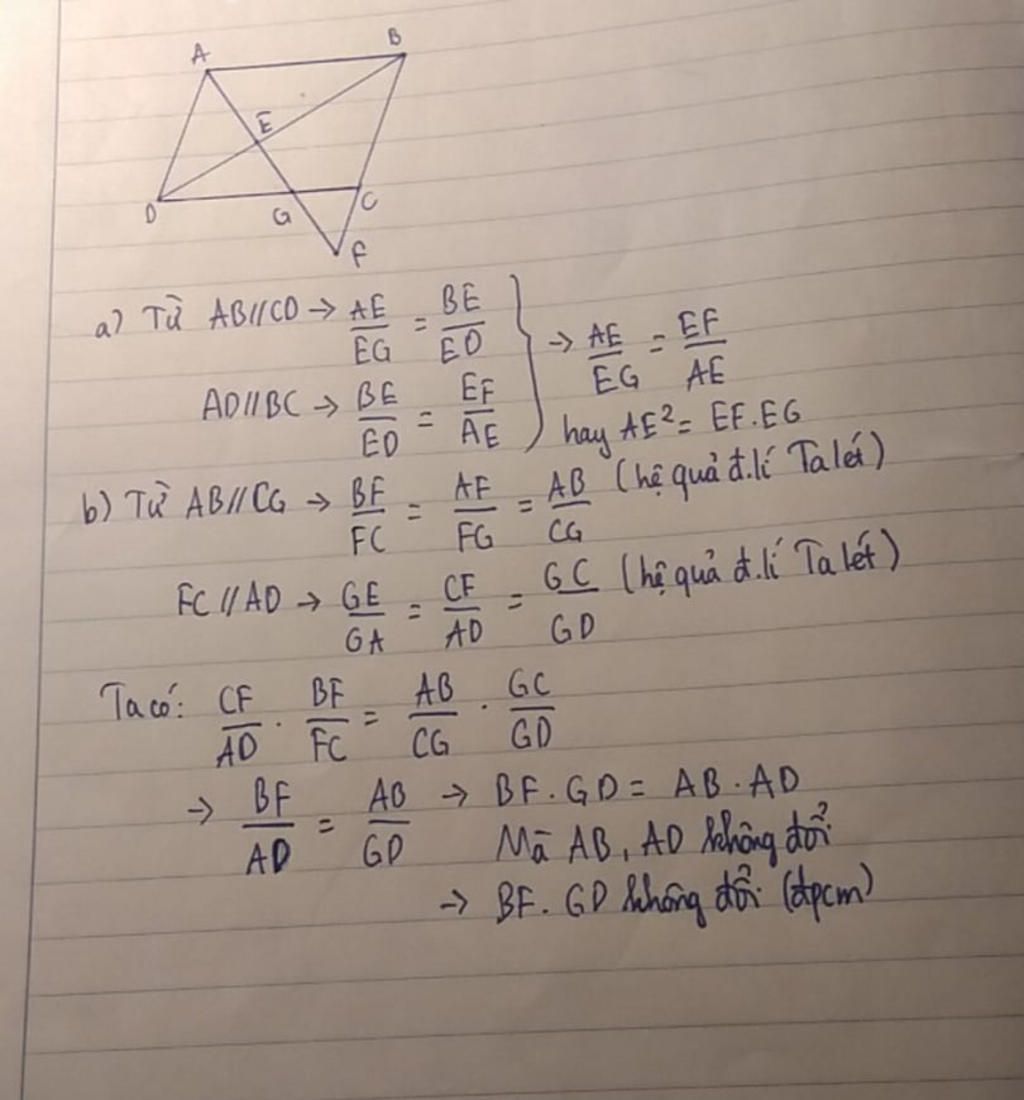 A B
E
D G C
F
a) Từ AB//CD → AE/EG = BE/ED
AD//BC → BE/ED = EF/AE
→ AE/EG = EF/AE
hay AE² = EF.EG
b) Từ AB//CG → BF/FC = AF/FG = AB/CG (hệ quả đ.lí Ta lét)
FC//AD → GE/GA = CF/AD = GC/GD (hệ quả đ.lí Ta lét)
Ta có: CF/AD . BF/FC = AB/CG . GC/GD
→ BF/AD = AB/GD → BF.GD = AB.AD
Mà AB, AD không đổi
→ BF.GD không đổi (đpcm)